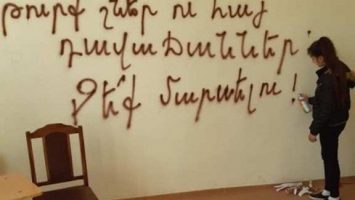 թուրք շներ ու հայ
դավաճաններ՝
Չե՛ք մարսելու!